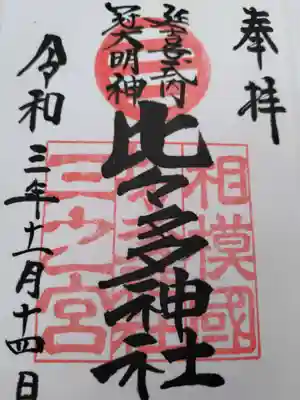 奉拝
延喜式内
冠大明神
比々多神社
相模國
三之宮
令和三年十一月十四日